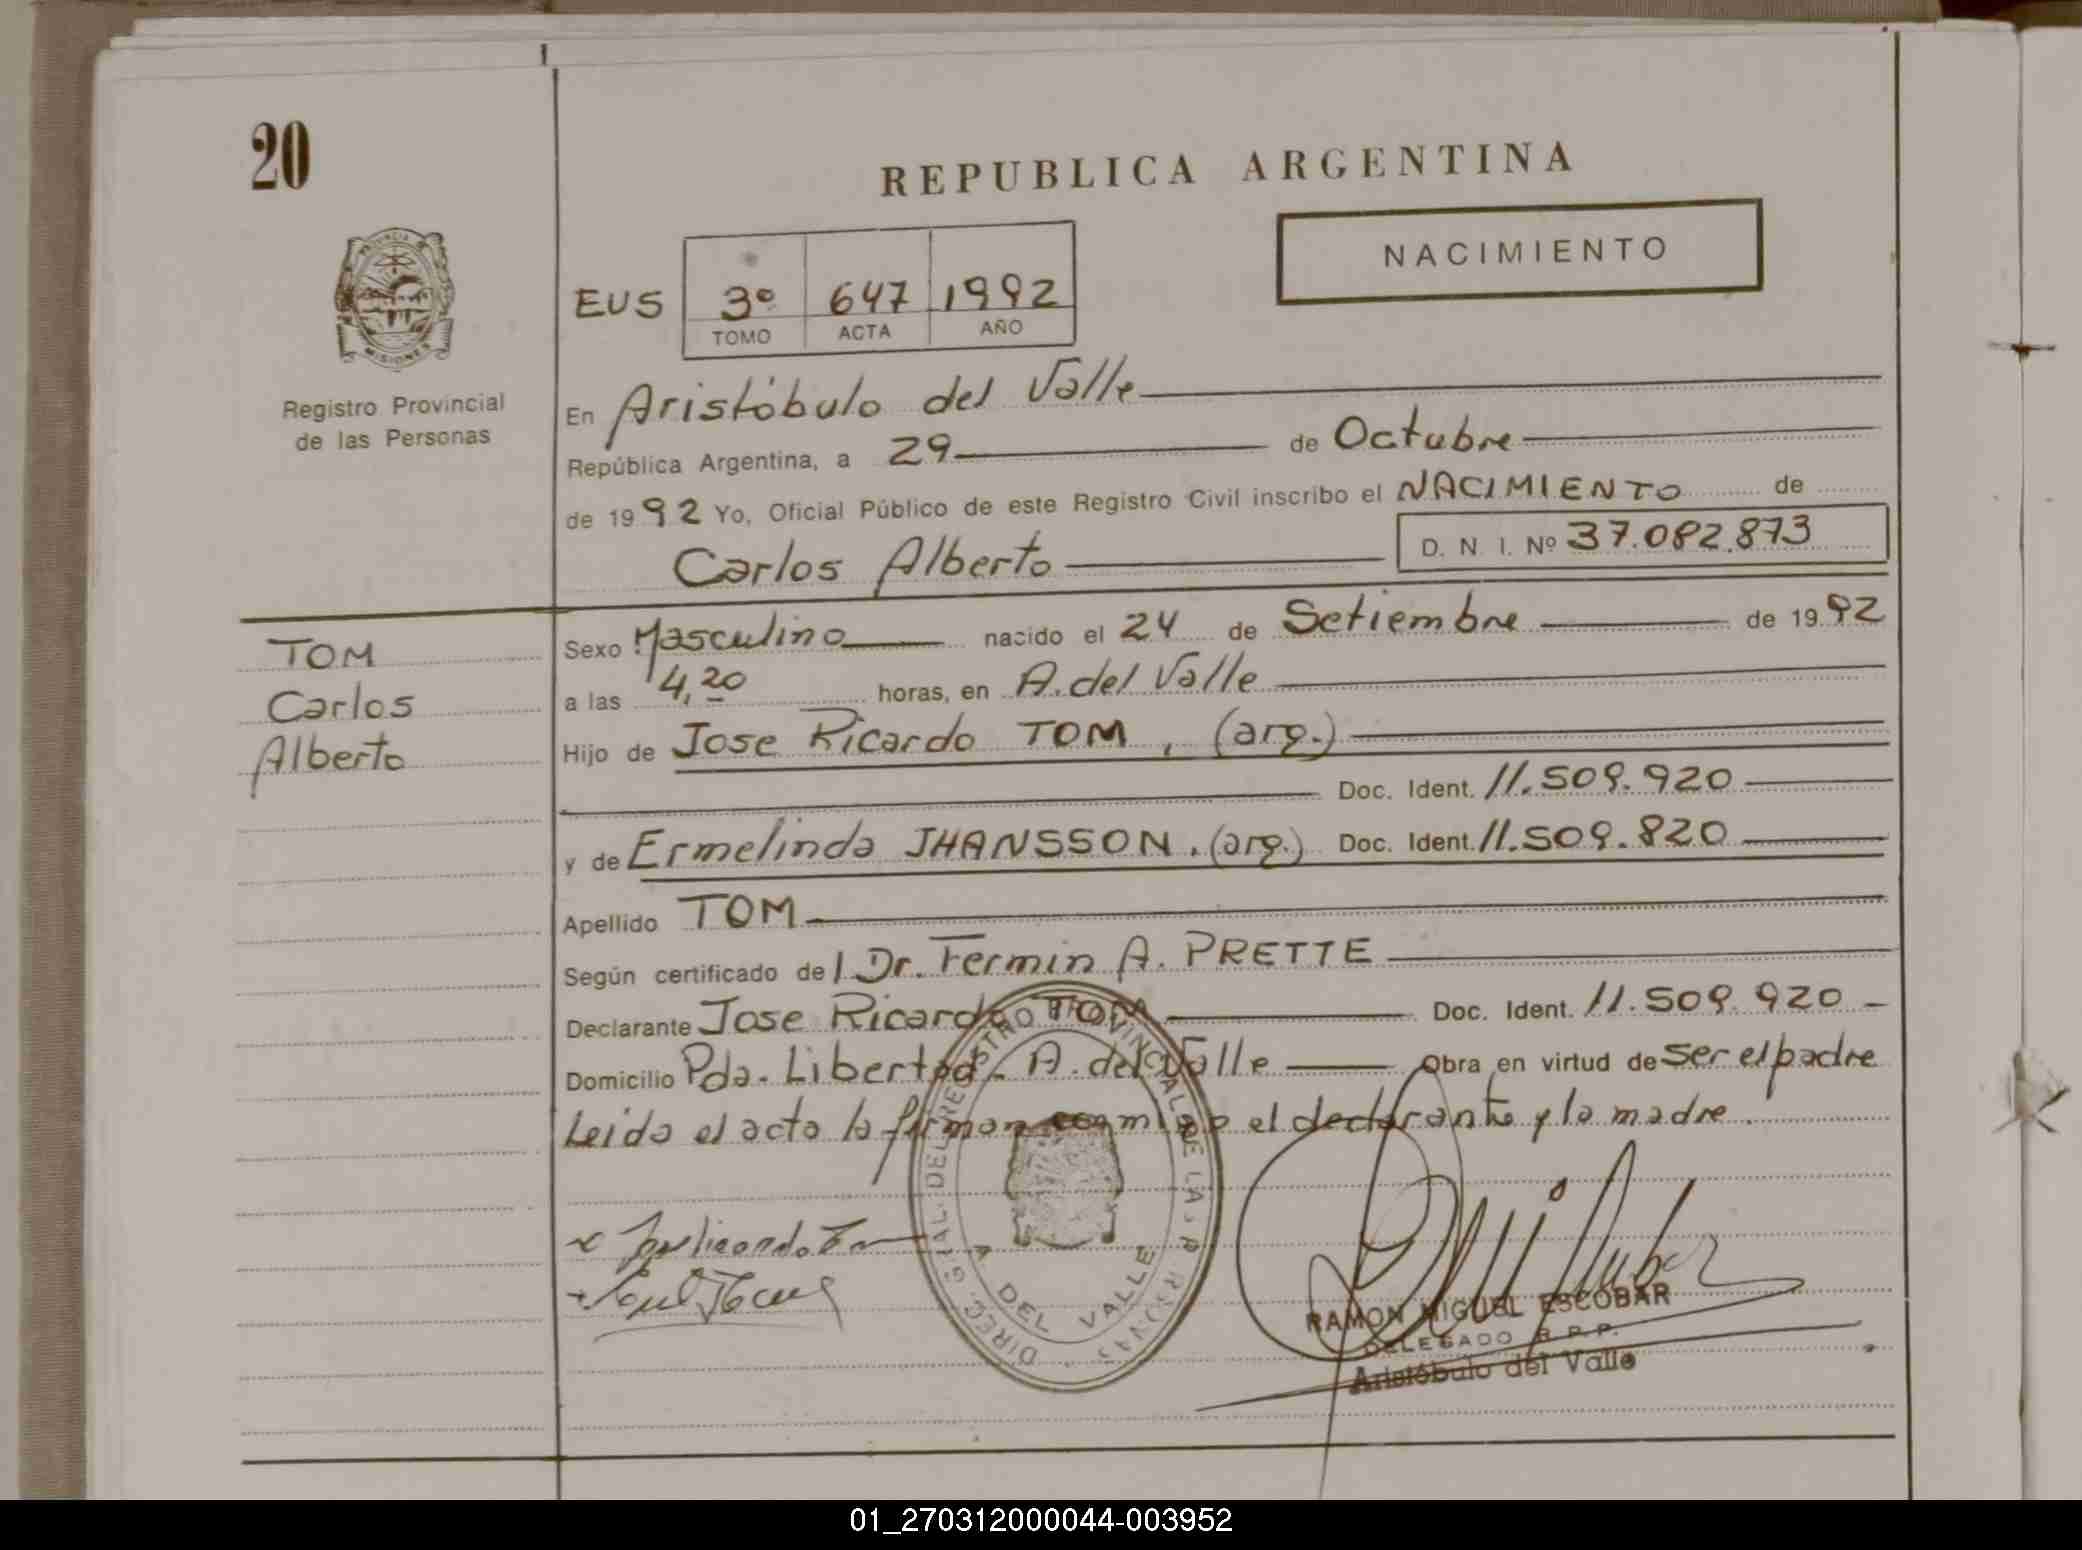 20
REPUBLICA ARGENTINA
NACIMIENTO
PROVINCIA
MISIONES
Registro Provincial
de las Personas
EUS 3º 647 1992
TOMO ACTA AÑO
En Aristóbulo del Valle
República Argentina, a 29 de Octubre
de 1992 Yo, Oficial Público de este Registro Civil inscribo el NACIMIENTO de
Carlos Alberto D. N. I. Nº 37.082.873
TOM
Carlos
Alberto
Sexo Masculino nacido el 24 de Setiembre de 1992
a las 4,20 horas, en A. del Valle
Hijo de Jose Ricardo TOM, (arg.)
Doc. Ident. 11.509.920
y de Ermelinda JHANSSON. (arg.) Doc. Ident. 11.509.820
Apellido TOM
Según certificado del Dr. Fermin A. PRETTE
Declarante Jose Ricardo TOM Doc. Ident. 11.509.920
Domicilio Pda. Libertad - A. del Valle Obra en virtud de ser el padre
Leida el acta la firman conmigo el declarante y la madre.
DIREC. GRAL. DEL REGISTRO PROVINCIAL DE LAS PERSONAS
A. DEL VALLE
RAMON MIGUEL ESCOBAR
DELEGADO R.P.P.
Aristóbulo del Valle
01_270312000044-003952